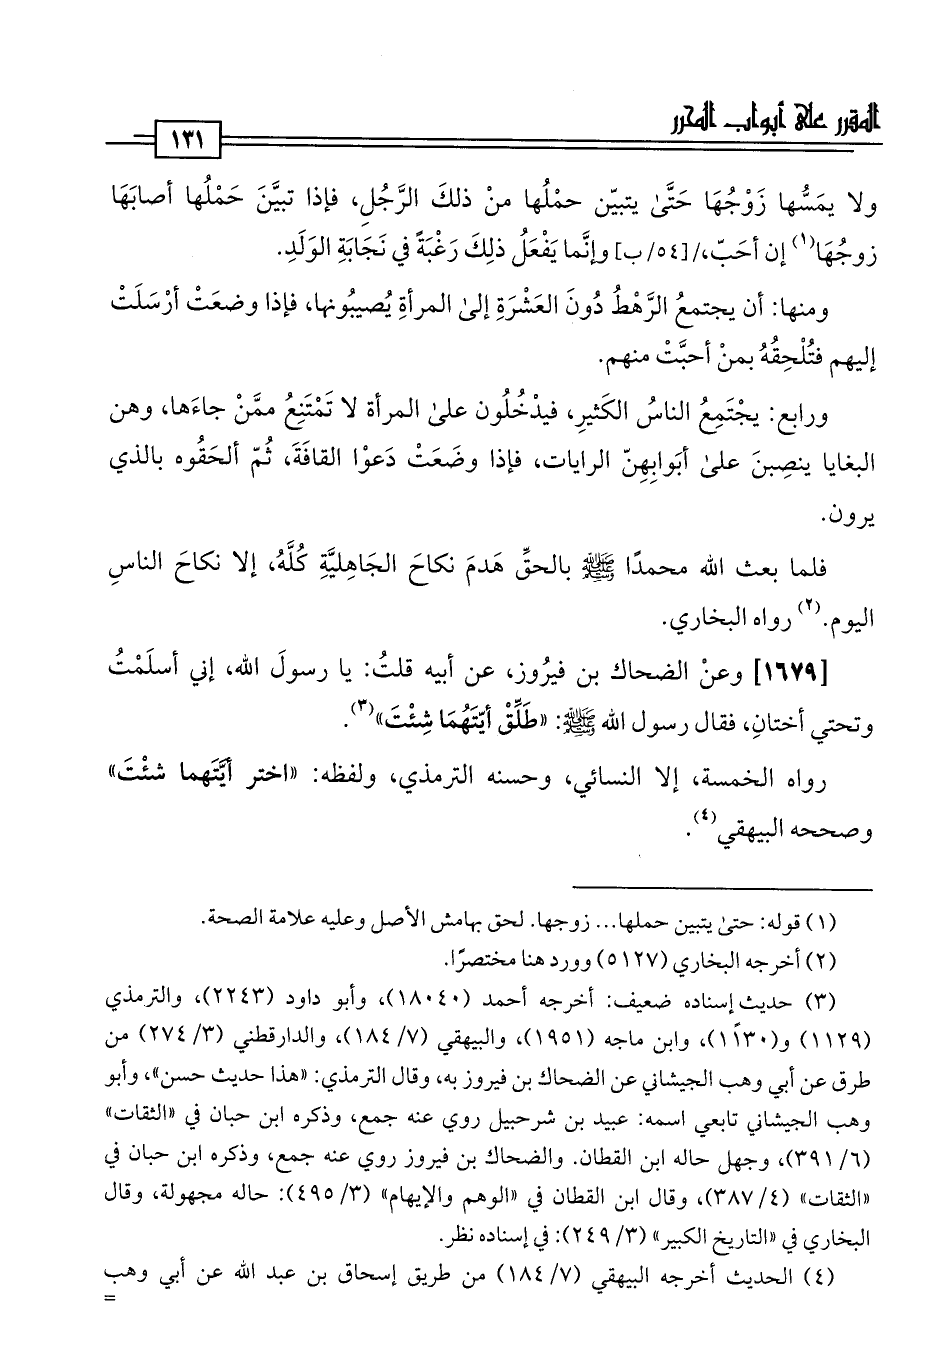 المقرر على أبواب المحرر
١٣١
ولا يمَسُّها زَوْجُهَا حَتَّىٰ يتبيّن حمْلُها منْ ذلكَ الرَّجُلِ، فإذا تبيَّنَ حَمْلُها أصابَهَا
زوجُهَا(١) إن أحَبّ،/[٥٤/ ب] وإنَّما يَفْعَلُ ذلِكَ رَغْبَةً في نَجَابَةِ الوَلَدِ.
ومنها: أن يجتمعُ الرَّهْطُ دُونَ العَشْرَةِ إلىٰ المرأةِ يُصيبُونها، فإذا وضعَتْ أرْسَلَتْ
إليهم فتُلْحِقُهُ بمنْ أحبَّتْ منهم.
ورابع: يجْتَمِعُ الناسُ الكَثيرِ، فيدْخُلُون علىٰ المرأة لا تَمْتَنِعُ ممَّنْ جاءَها، وهن
البغايا ينصِبنَ علىٰ أبَوابِهِنّ الرايات، فإذا وضَعَتْ دَعوْا القافَةَ، ثُمّ ألحَقُوه بالذي
يرون.
فلما بعث الله محمدًا ﷺ بالحقِّ هَدمَ نكاحَ الجَاهليَّةِ كُلَّهُ، إلا نكاحَ الناسِ
اليوم.(٢) رواه البخاري.
[١٦٧٩] وعنْ الضحاك بن فيرُوز، عن أبيه قلتُ: يا رسولَ الله، إني أسلَمْتُ
وتحتي أختانِ، فقال رسول الله ﷺ: «طَلِّقْ أيّتَهُمَا شِئْتَ»(٣).
رواه الخمسة، إلا النسائي، وحسنه الترمذي، ولفظه: «اختر أيَّتَهما شئْتَ»
وصححه البيهقي(٤).
(١) قوله: حتىٰ يتبين حملها... زوجها. لحق بهامش الأصل وعليه علامة الصحة.
(٢) أخرجه البخاري (٥١٢٧) وورد هنا مختصرًا.
(٣) حديث إسناده ضعيف: أخرجه أحمد (١٨٠٤٠)، وأبو داود (٢٢٤٣)، والترمذي
(١١٢٩) و(١١٣٠)، وابن ماجه (١٩٥١)، والبيهقي (٧/ ١٨٤)، والدارقطني (٣/ ٢٧٤) من
طرق عن أبي وهب الجيشاني عن الضحاك بن فيروز به، وقال الترمذي: «هذا حديث حسن»، وأبو
وهب الجيشاني تابعي اسمه: عبيد بن شرحبيل روي عنه جمع، وذكره ابن حبان في «الثقات»
(٦/ ٣٩١)، وجهل حاله ابن القطان. والضحاك بن فيروز روي عنه جمع، وذكره ابن حبان في
«الثقات» (٤/ ٣٨٧)، وقال ابن القطان في «الوهم والإيهام» (٣/ ٤٩٥): حاله مجهولة، وقال
البخاري في «التاريخ الكبير» (٣/ ٢٤٩): في إسناده نظر.
(٤) الحديث أخرجه البيهقي (٧/ ١٨٤) من طريق إسحاق بن عبد الله عن أبي وهب
=